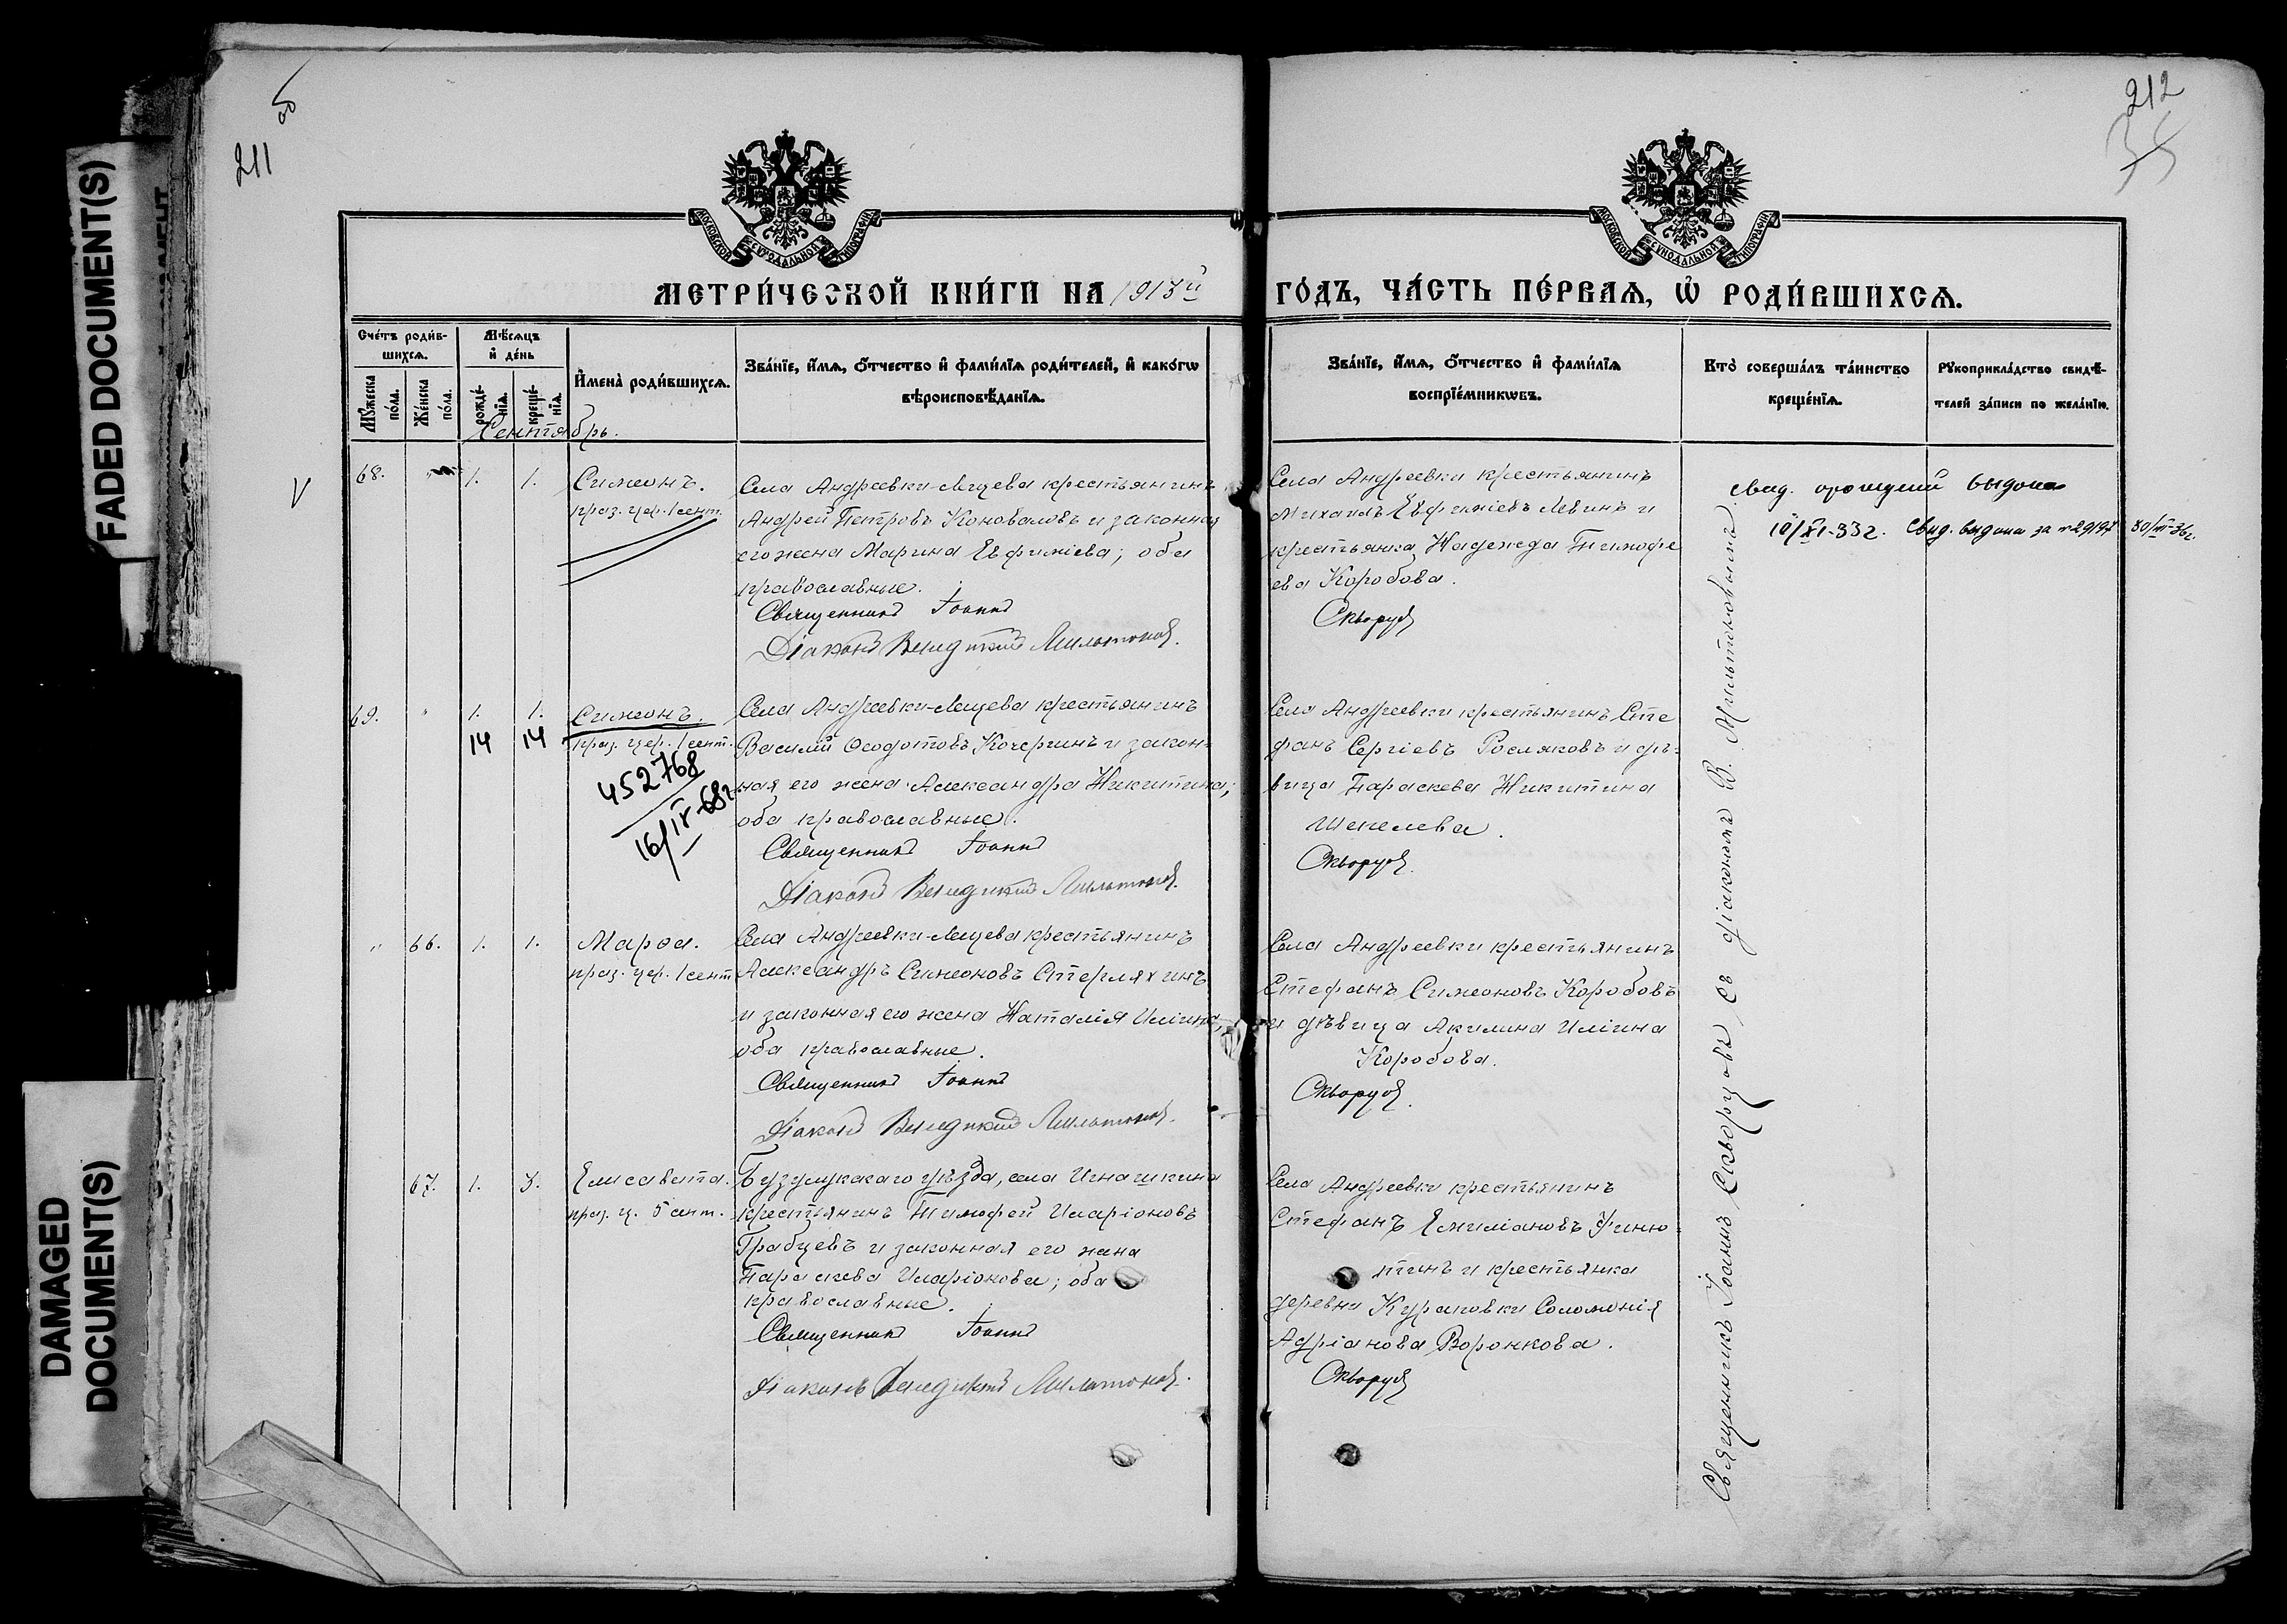 об
211
212
35
FADED DOCUMENT(S)
DAMAGED DOCUMENT(S)
МОСКОВСКОЙ СѴНОДАЛЬНОЙ ТИПОГРАФІИ
МОСКОВСКОЙ СѴНОДАЛЬНОЙ ТИПОГРАФІИ
МЕТРИ́ЧЕСКОЙ КНИ́ГИ НА 1913й ГО́ДЪ, ЧА́СТЬ ПЕ́РВАѦ, Ѡ҆ РОДИ́ВШИХСѦ.
Сче́тъ роди́в-
шихсѧ.
Мꙋжеска по́ла.
Же́нска по́ла.
Мѣ́сѧцъ
и҆ де́нь
рожде́-
нїѧ.
креще́-
нїѧ.
И҆мена̀ роди́вшихсѧ.
Зва́нїе, и҆́мѧ, ѻ҆́тчество и҆ фами́лїѧ роди́телей, и҆ како́гѡ
вѣроисповѣ́данїѧ.
Зва́нїе, и҆́мѧ, ѻ҆́тчество и҆ фами́лїѧ
воспрїе́мникѡвъ.
Кто̀ соверша́лъ та́инство
креще́нїѧ.
Рꙋкоприкла́дство свидѣ́-
телей за́писи по жела́нїю.
Сентябрь.
V
68. " 1. 1. Симеонъ.
праз. цер. 1 сент.
Села Андреевки-Лещева крестьянинъ
Андрей Петровъ Коноваловъ и законная
его жена Марина Евфиміева; оба
православные.
Священникъ Іоаннъ
Діаконъ Венедиктъ Мильтоновъ.
Села Андреевки крестьянинъ
Михаилъ Евфиміевъ Левинъ и
крестьянка Надежда Тимофе
ева Коробова.
Скворцовъ
свид. о рождении выдано
10/XI-33г. Свид. выдано за № 29197 30/III-36г.
69. " 1. 1. Симеонъ.
14 14 праз. цер. 1 сент.
452768
16/IV-68г.
Села Андреевки-Лещева крестьянинъ
Василій Ѳеодотовъ Кочергинъ и закон-
ная его жена Александра Никитина;
оба православные.
Священникъ Іоаннъ
Діаконъ Венедиктъ Мильтоновъ.
Села Андреевки крестьянинъ Сте
фанъ Сергіевъ Росляковъ и дѣ-
вица Параскева Никитина
Шепелева.
Скворцовъ.
" 66. 1. 1. Марѳа.
праз. цер. 1 сент
Села Андреевки-Лещева крестьянинъ
Александръ Симеоновъ Стерляхинъ
и законная его жена Наталія Иліина,
оба православные.
Священникъ Іоаннъ
Діаконъ Венедиктъ Мильтоновъ.
Села Андреевки крестьянинъ
Стефанъ Симеоновъ Коробовъ
и дѣвица Акилина Иліина
Коробова.
Скворцовъ.
67. 1. 3. Елисавета.
праз. ц. 5 сент.
Бузулукскаго уѣзда, села Игнашкина
крестьянинъ Тимофей Иларіоновъ
Грабцевъ и законная его жена
Параскева Иларіонова; оба
православные.
Священникъ Іоаннъ
Діаконъ Венедиктъ Мильтоновъ.
Села Андреевки крестьянинъ
Стефанъ Емиліановъ Финю-
тинъ и крестьянка
деревни Кураповки Соломонія
Адріанова Воронкова.
Скворцовъ
Священникъ Іоаннъ Скворцовъ съ діакономъ В. Мильтоновымъ.